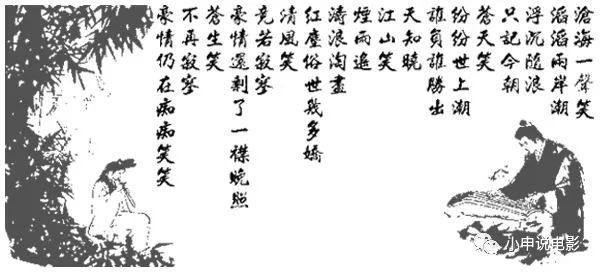 滄海一聲笑
滔滔兩岸潮
浮沉隨浪
只記今朝
蒼天笑
紛紛世上潮
誰負誰勝出
天知曉
江山笑
煙雨遙
濤浪淘盡
紅塵俗世幾多嬌
清風笑
竟若寂寥
豪情還剩了一襟晚照
蒼生笑
不再寂寥
豪情仍在痴痴笑笑
小申说电影